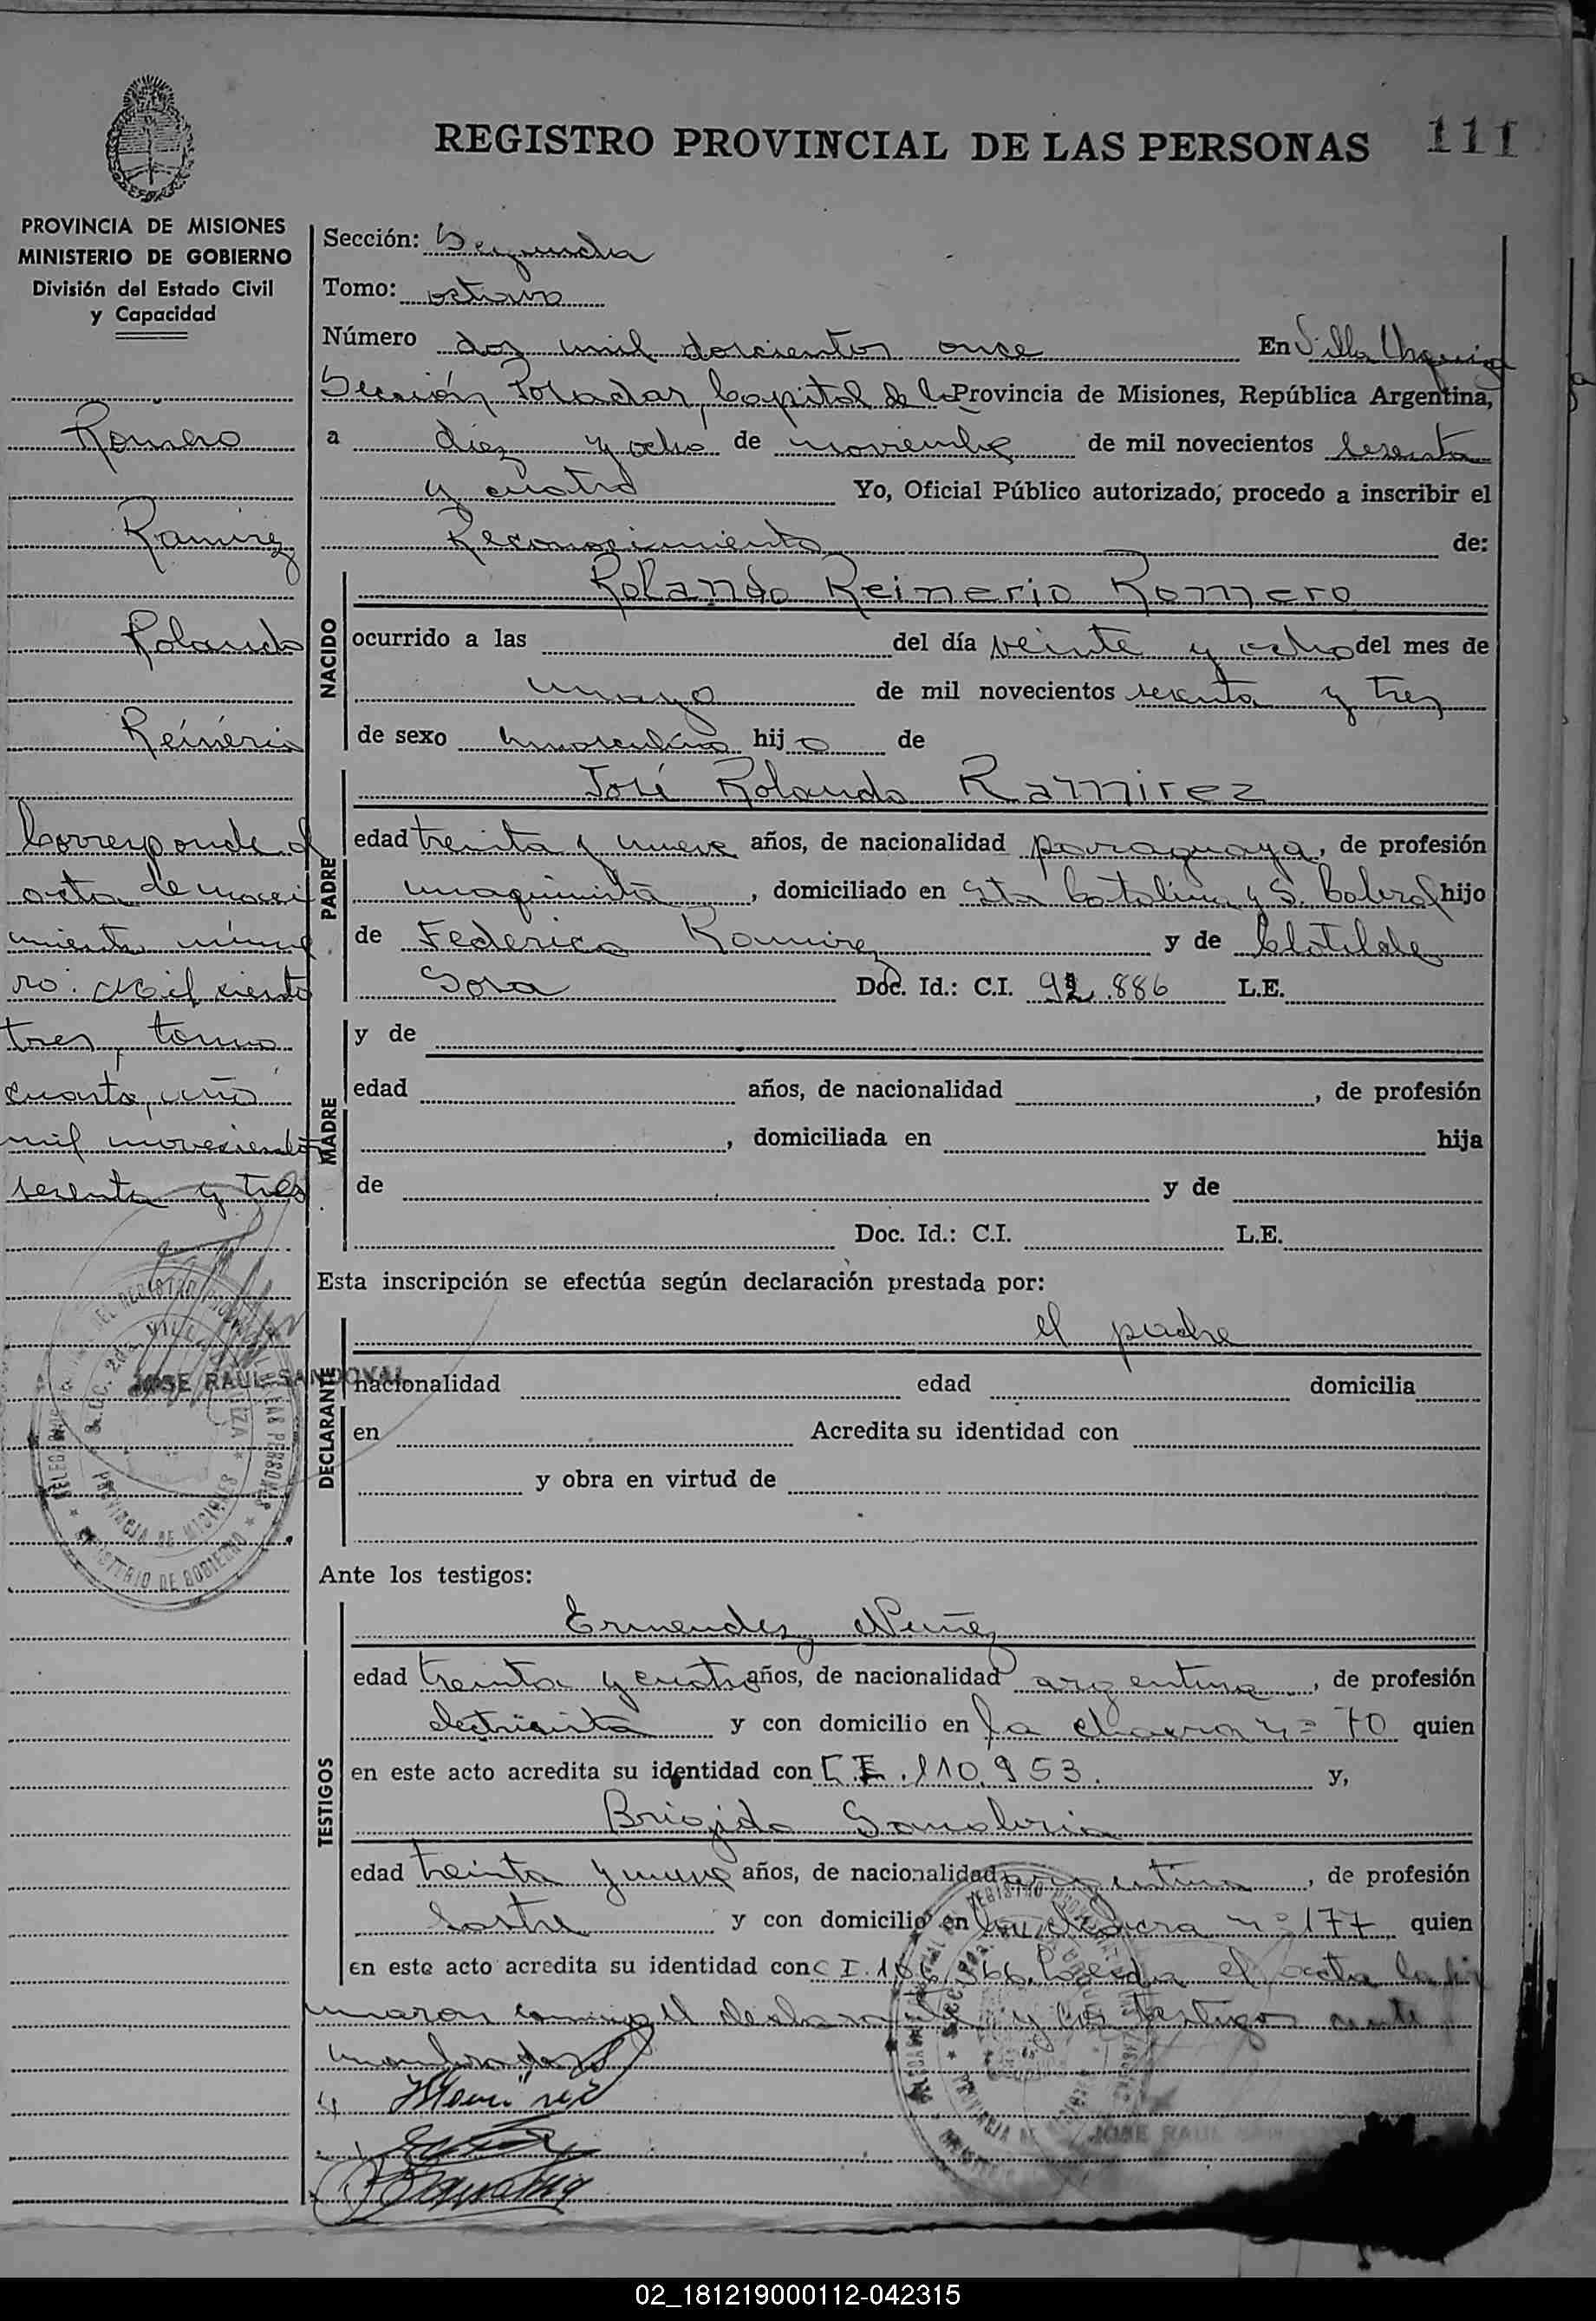 REGISTRO PROVINCIAL DE LAS PERSONAS 111
PROVINCIA DE MISIONES
MINISTERIO DE GOBIERNO
División del Estado Civil
y Capacidad
Romero
Ramirez
Rolando
Reinerio
Corresponde al
acta de naci
miento núme
ro: Mil ciento
tres, tomo
cuarto, año
mil novecientos
sesenta y tres
JOSE RAUL SANDOVAL
Sección: Segunda
Tomo: octavo
Número dos mil doscientos once En Villa Urquiza
Sección Posadas, Capital de la Provincia de Misiones, República Argentina,
a diez y ocho de noviembre de mil novecientos sesenta
y cuatro Yo, Oficial Público autorizado, procedo a inscribir el
Reconocimiento de:
NACIDO
Rolando Reinerio Romero
ocurrido a las del día veinte y ocho del mes de
mayo de mil novecientos sesenta y tres
de sexo masculino hijo de
PADRE
José Rolando Ramirez
edad treinta y nueve años, de nacionalidad paraguaya, de profesión
maquinista, domiciliado en Sta Catalina y S. hijo
de Federico Ramirez y de Clotilde
Sosa Doc. Id.: C.I. 92.886 L.E.
MADRE
y de
edad años, de nacionalidad , de profesión
, domiciliada en hija
de y de
Doc. Id.: C.I. L.E.
Esta inscripción se efectúa según declaración prestada por:
DECLARANTE
el padre
nacionalidad edad domicilia
en Acredita su identidad con
y obra en virtud de
Ante los testigos:
TESTIGOS
Ermendez Nuñez
edad treinta y cuatro años, de nacionalidad argentina, de profesión
electricista y con domicilio en la chacra nº 70 quien
en este acto acredita su identidad con C.I. 110.953. y,
Brigido Sanabria
edad treinta y nueve años, de nacionalidad argentina, de profesión
sastre y con domicilio en la chacra nº 177 quien
en este acto acredita su identidad con C I. Leida el acta la fir
maron conmigo el declarante y los testigos ante
nombrados
JOSE RAUL
02_181219000112-042315